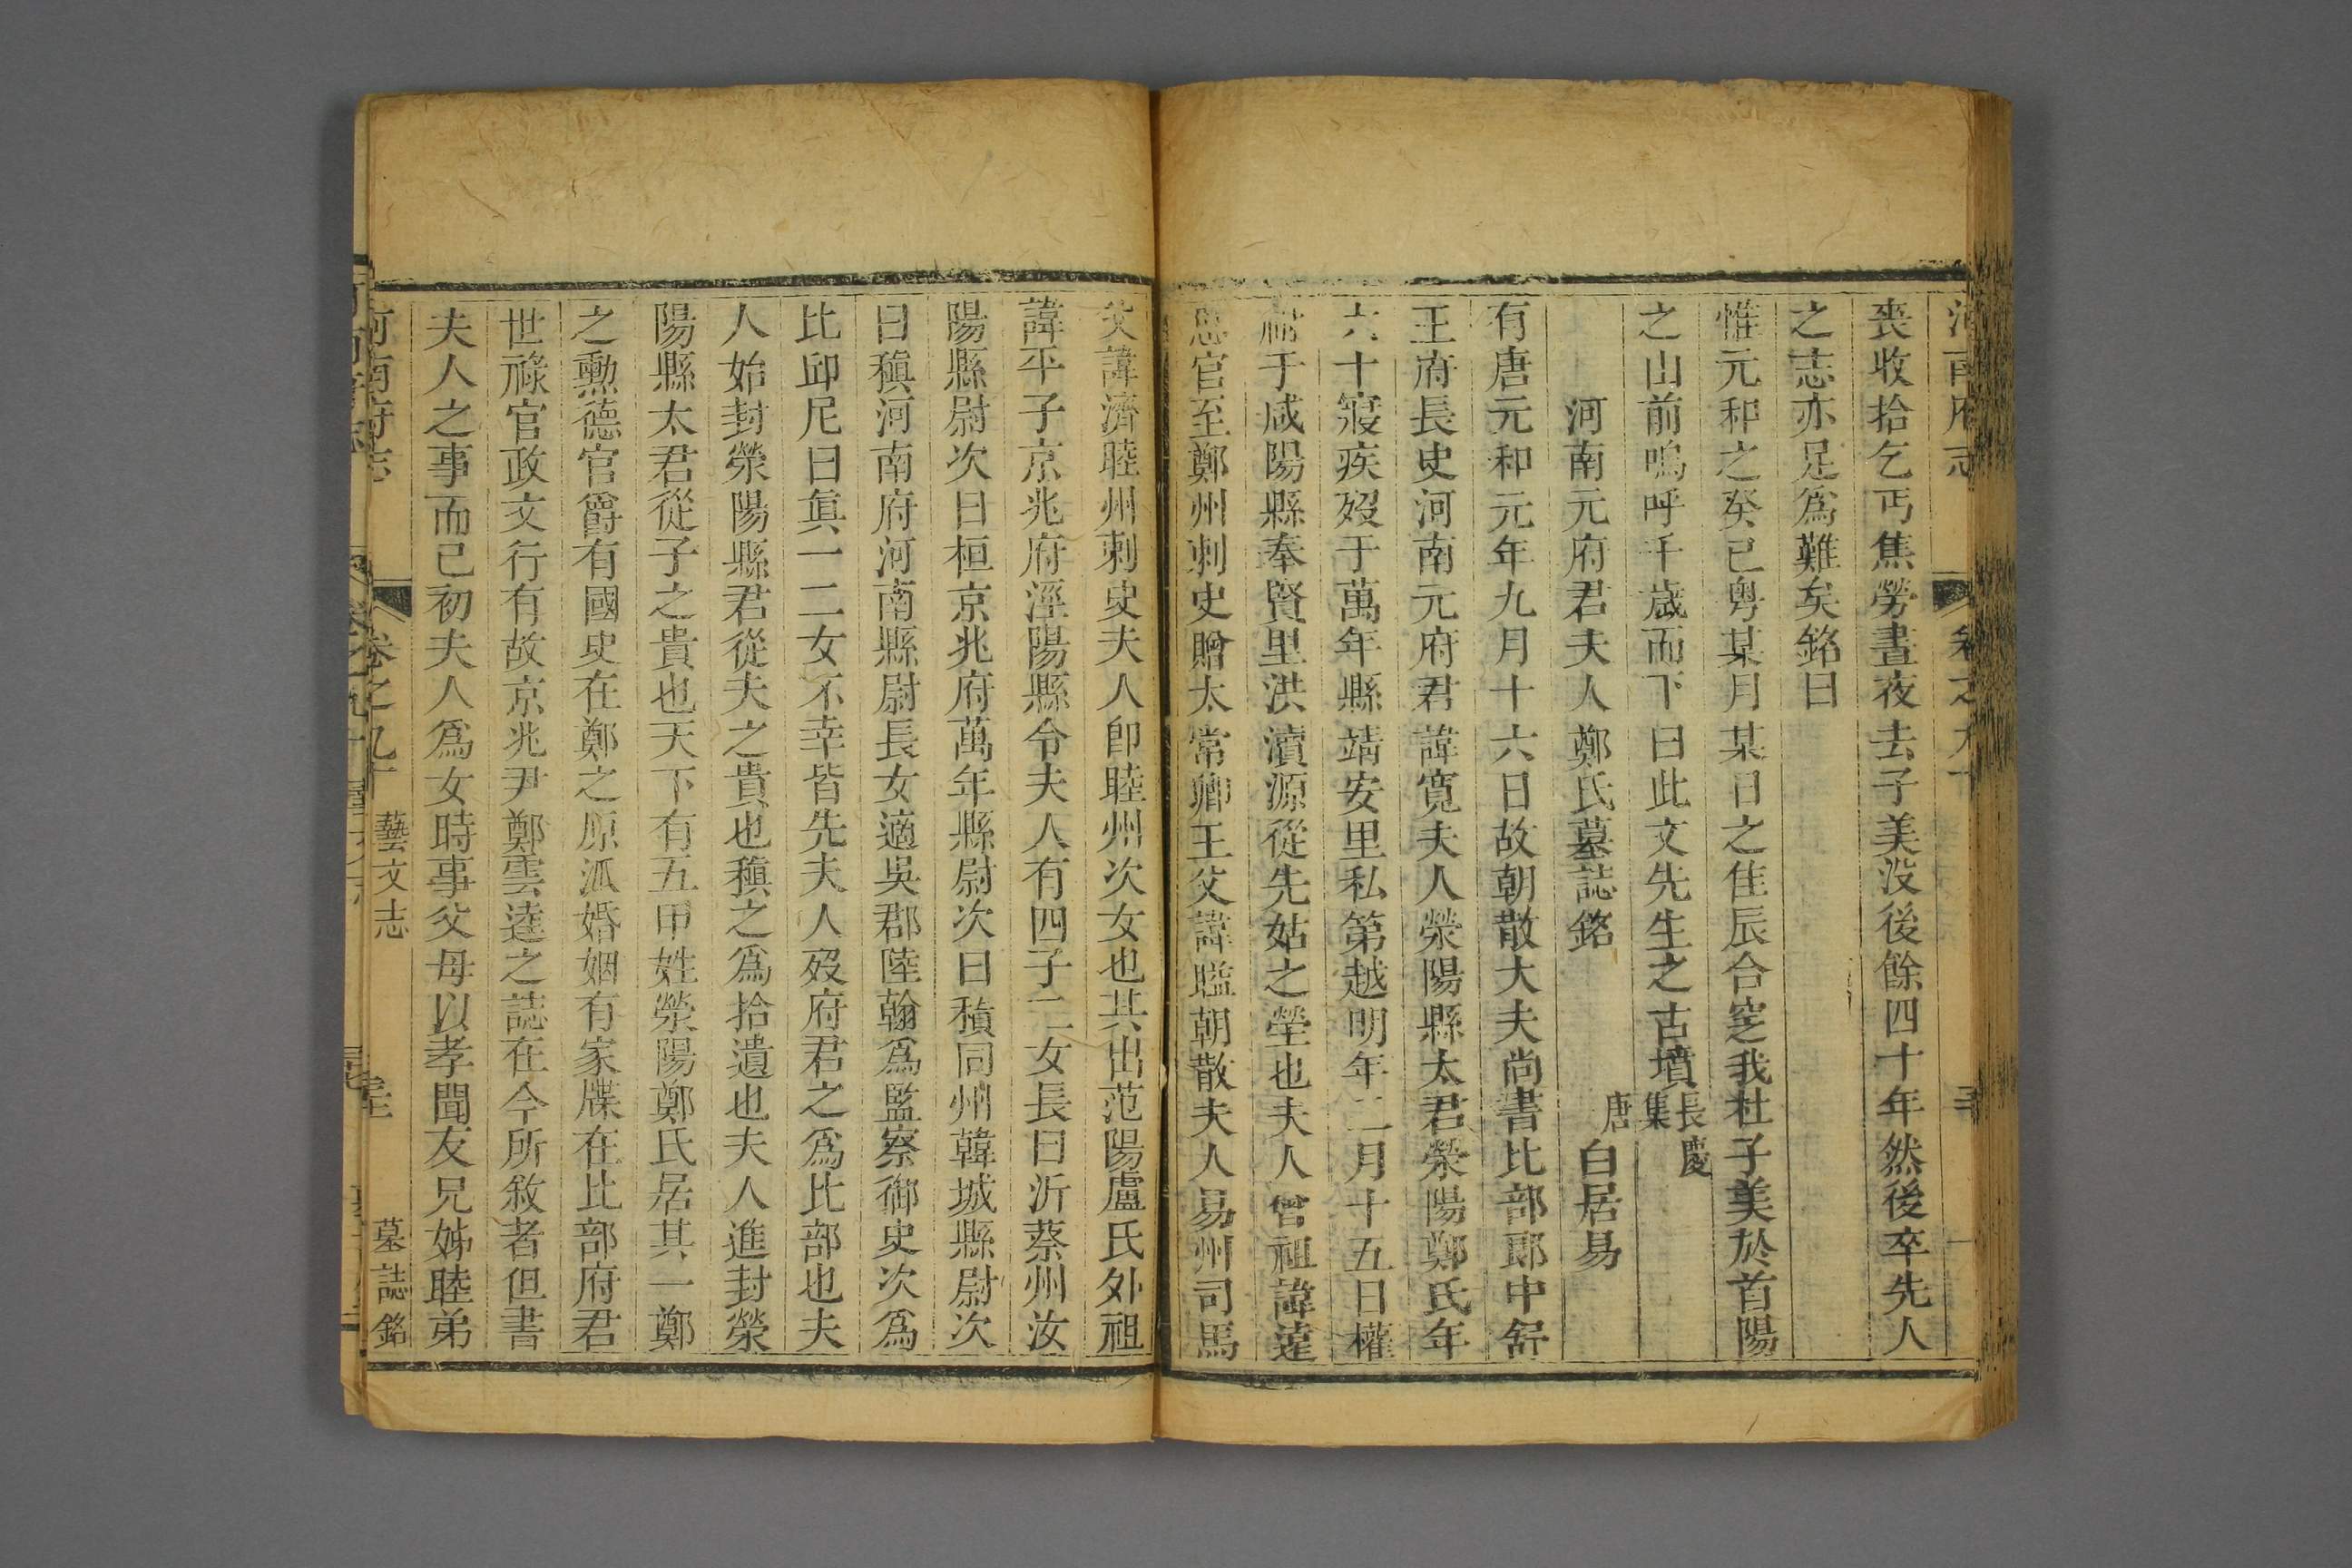 喪收拾乞丐焦勞晝夜去子美没後餘四十年然後卒先人
之志亦足為難矣銘曰
惟元和之癸巳粤某月某日之佳辰合窆我杜子美於首陽
之山前嗚呼千歲而下曰此文先生之古墳
河南元府君夫人鄭氏墓誌銘
長慶
集
唐
白居易
有唐元和元年九月十六日故朝散大夫尚書比部郎中舒
王府長史河南元府君諱寬夫人滎陽縣太君滎陽鄭氏年
六十寢疾歿于萬年縣靖安里私第越明年二月十五日權
祔于咸陽縣奉賢里洪瀆源從先姑之塋也夫人曾祖諱遠
思官至鄭州刺史贈太常卿王父諱㬼朝散夫人易州司馬
父諱濟睦州刺史夫人卽睦州次女也其出范陽盧氏外祖
諱平子京兆府涇陽縣令夫人有四子二女長曰沂蔡州汝
陽縣尉次曰桓京兆府萬年縣尉次曰積同州韓城縣尉次
曰稹河南府河南縣尉長女適吳郡陸翰爲監察御史次爲
比邱尼曰眞一二女不幸皆先夫人歿府君之爲比部也夫
人始封滎陽縣君從夫之貴也稹之爲拾遺也夫人進封滎
陽縣太君從子之貴也天下有五甲姓滎陽鄭氏居其一鄭
之勲德官爵有國史在鄭之原派婚姻有家牒在比部府君
世祿官政文行有故京兆尹鄭雲逵之誌在今所敘者但書
夫人之事而已初夫人爲女時事父母以孝聞友兄姊睦弟
河南府志
卷之九十
藝文志
墓誌銘